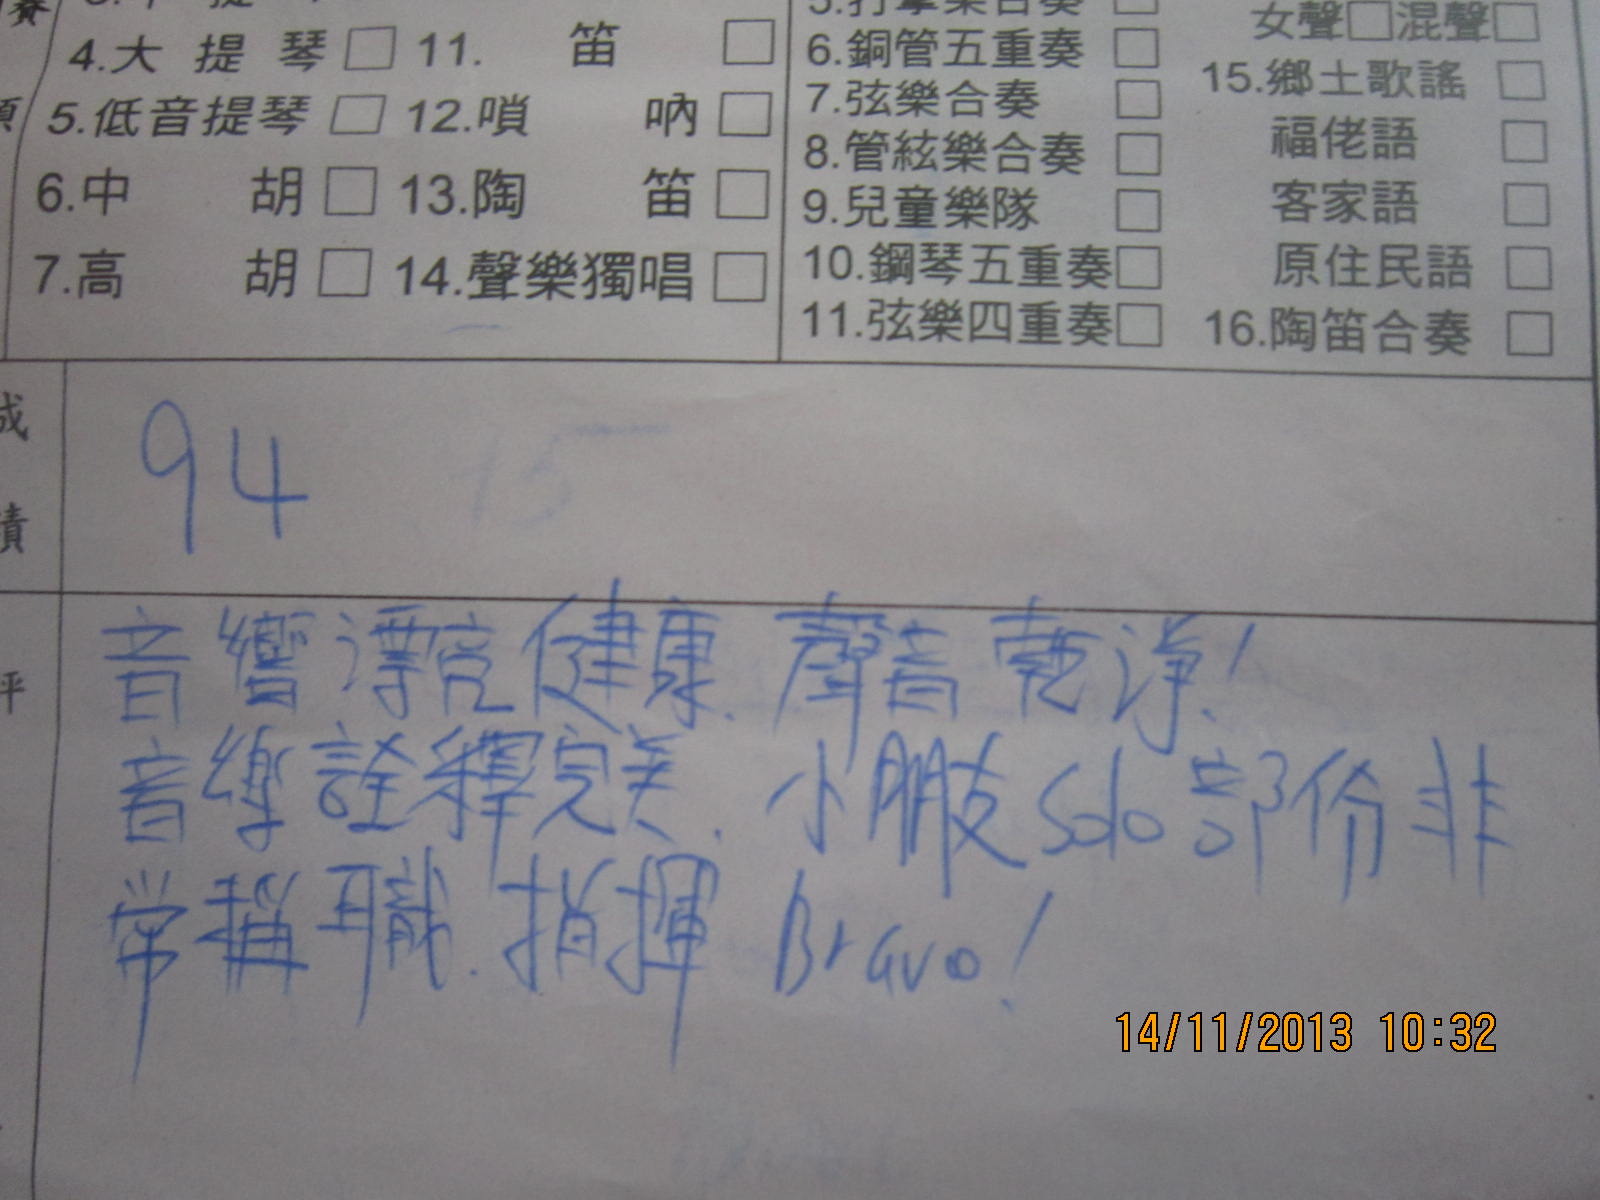 賽
4.大提琴□ 11.笛□
5.低音提琴□ 12.嗩吶□
6.中胡□ 13.陶笛□
7.高胡□ 14.聲樂獨唱□
5.打擊樂合奏□
6.銅管五重奏□
7.弦樂合奏□
8.管絃樂合奏□
9.兒童樂隊□
10.鋼琴五重奏□
11.弦樂四重奏□
女聲□混聲□
15.鄉土歌謠□
福佬語□
客家語□
原住民語□
16.陶笛合奏□
成績
94
評
音響漂亮健康.聲音乾淨!
音樂詮釋完美.小朋友Solo部份非
常稱職.指揮 Bravo!
14/11/2013 10:32